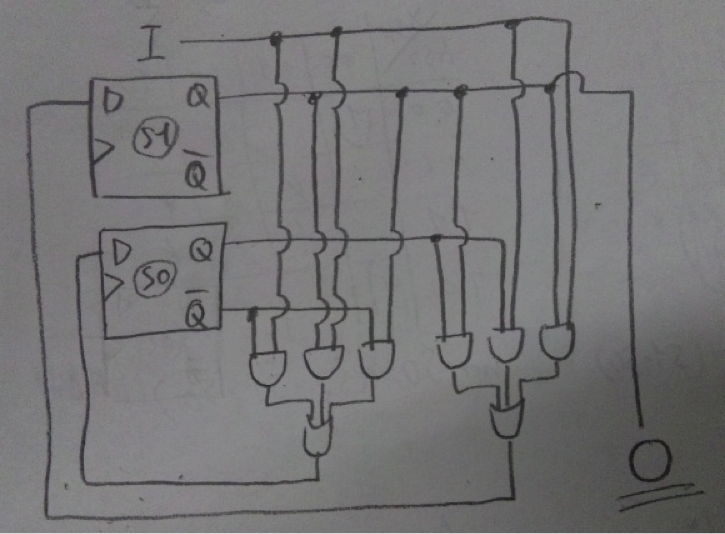 I
D Q
S1
Q̅
D Q
S0
Q̅
O